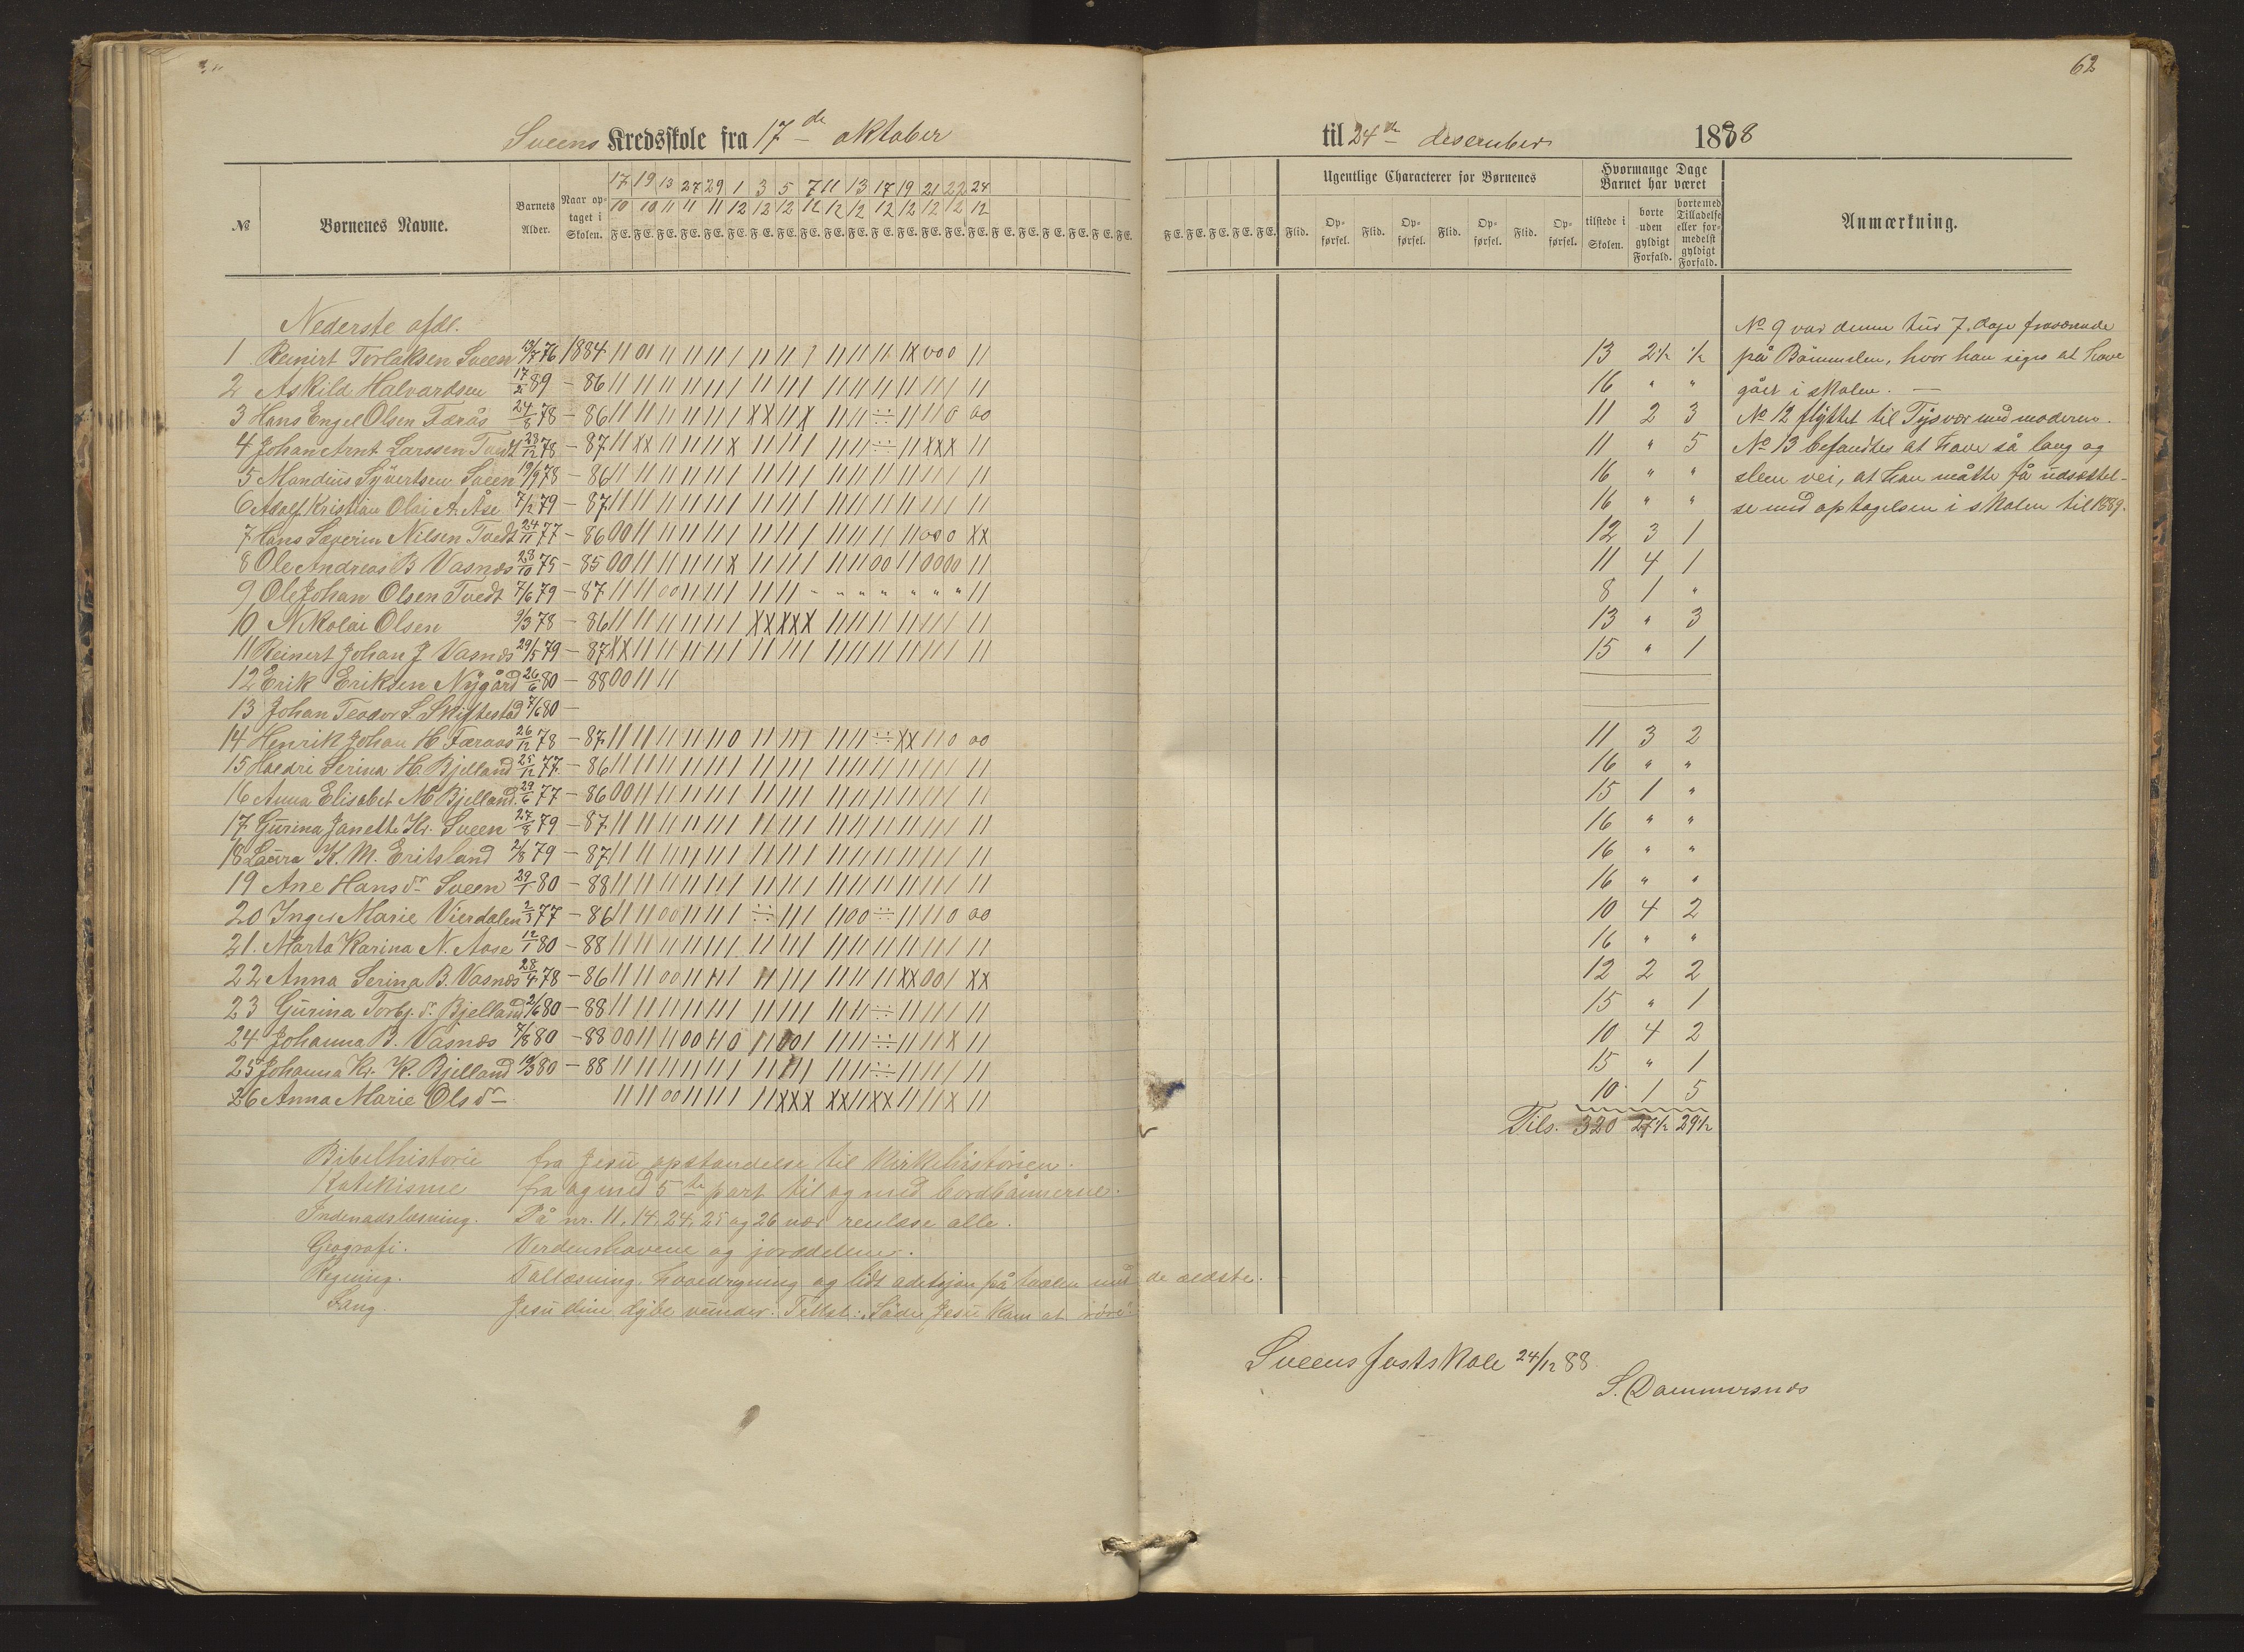 62
Sveens Kredsskole fra 17de oktober til 24de desember 1888
№ Børnenes Navne. Barnets Alder. Naar optaget i Skolen. 17/10 19/10 13/11 27/11 29/11 1/12 3/12 5/12 7/12 11/12 13/12 17/12 19/12 21/12 22/12 24/12
F E. F E. F E. F E. F E. F E. F E. F E. F E. F E. F E. F E. F E. F E. F E. F E. F E. F E. F E. F E. F E. F E.
Ugentlige Characterer for Børnenes
Flid. Opførsel. Flid. Opførsel. Flid. Opførsel. Flid. Opførsel.
Hvormange Dage Barnet har været
tilstede i Skolen. borte uden gyldigt Forfald. borte med Tilladelse eller formedelst gyldigt Forfald.
Anmærkning.
Nederste afdl.
1 Reinert Torleksen Sveen 13/7 76 1884 13 2½ ½
2 Askild Halvardsen 17/2 89 – 86 16 " "
3 Hans Engel Olsen Færås 24/8 78 – 86 11 2 3
4 Johan Arnt Larssen Tvedt 23/12 78 – 87 11 " 5
5 Mandius Syvertsen Sveen 19/9 78 – 86 16 " "
6 Adolf Kristian Olai A. Åse 7/12 79 – 87 16 " "
7 Hans Severin Nilsen Tvedt 24/11 77 – 86 12 3 1
8 Ole Andreas B Vasnæs 28/10 75 – 85 11 4 1
9 Ole Johan Olsen Tvedt 7/6 79 – 87 8 1 "
10 Nikolai Olsen 9/3 78 – 86 13 " 3
11 Reinert Johan J Vasnæs 29/5 79 – 87 15 " 1
12 Erik Eriksen Nygård 26/6 80 – 88
13 Johan Teodor S. Skiftestad 7/6 80 –
14 Henrik Johan H Færaas 26/12 78 – 87 11 3 2
15 Serina H. Bjelland 25/12 77 – 86 16 " "
16 Anna Elisabet M Bjelland 29/6 77 – 86 15 1 "
17 Gurina Janette Kr. Sveen 27/8 79 – 87 16 " "
18 Laura K. M. Eritsland 2/8 79 – 87 16 " "
19 Ane Hansdr Sveen 29/1 80 – 88 16 " "
20 Inger Marie Vierdalen 2/3 77 – 86 10 4 2
21. Marta Karina N. Aase 12/1 80 – 88 16 " "
22 Anna Serina B. Vasnæs 28/4 78 – 86 12 2 2
23 Gurina Torbj. dr. Bjelland 2/6 80 – 88 15 " 1
24 Johanna B. Vasnæs 7/8 80 – 88 10 4 2
25 Johanna Kr. K. Bjelland 19/3 80 – 88 15 " 1
26 Anna Marie Olsdr 10 1 5
Tils. 320 27½ 29½
No 9 var denne tur 7 dage fraværende
på Bømmelen, hvor han siges at have
gået i skolen. —
No 12 flyttet til Tysvær med moderen.
No 13 befandtes at have så lang og
slem vei, at han måtte få udsættel-
se med optagelsen i skolen til 1889.
Bibelhistorie fra Jesu opstandelse til kirkehistorien.
Katekisme fra og med 5te part til og med bordbønnerne.
Indenadslæsning. På nr. 11, 14, 24, 25 og 26 nær renlæse alle.
Geografi. Verdenshavene og jorddelene.
Regning. Tallæsning, hovedregning og lidt adetsjon på tavlen med de ældste.
Sang. Jesu dine dybe vunder. Tekst: "Søde Jesu kom at røre"
Sveens fastskole 24/12 88
S. Dommersnæs